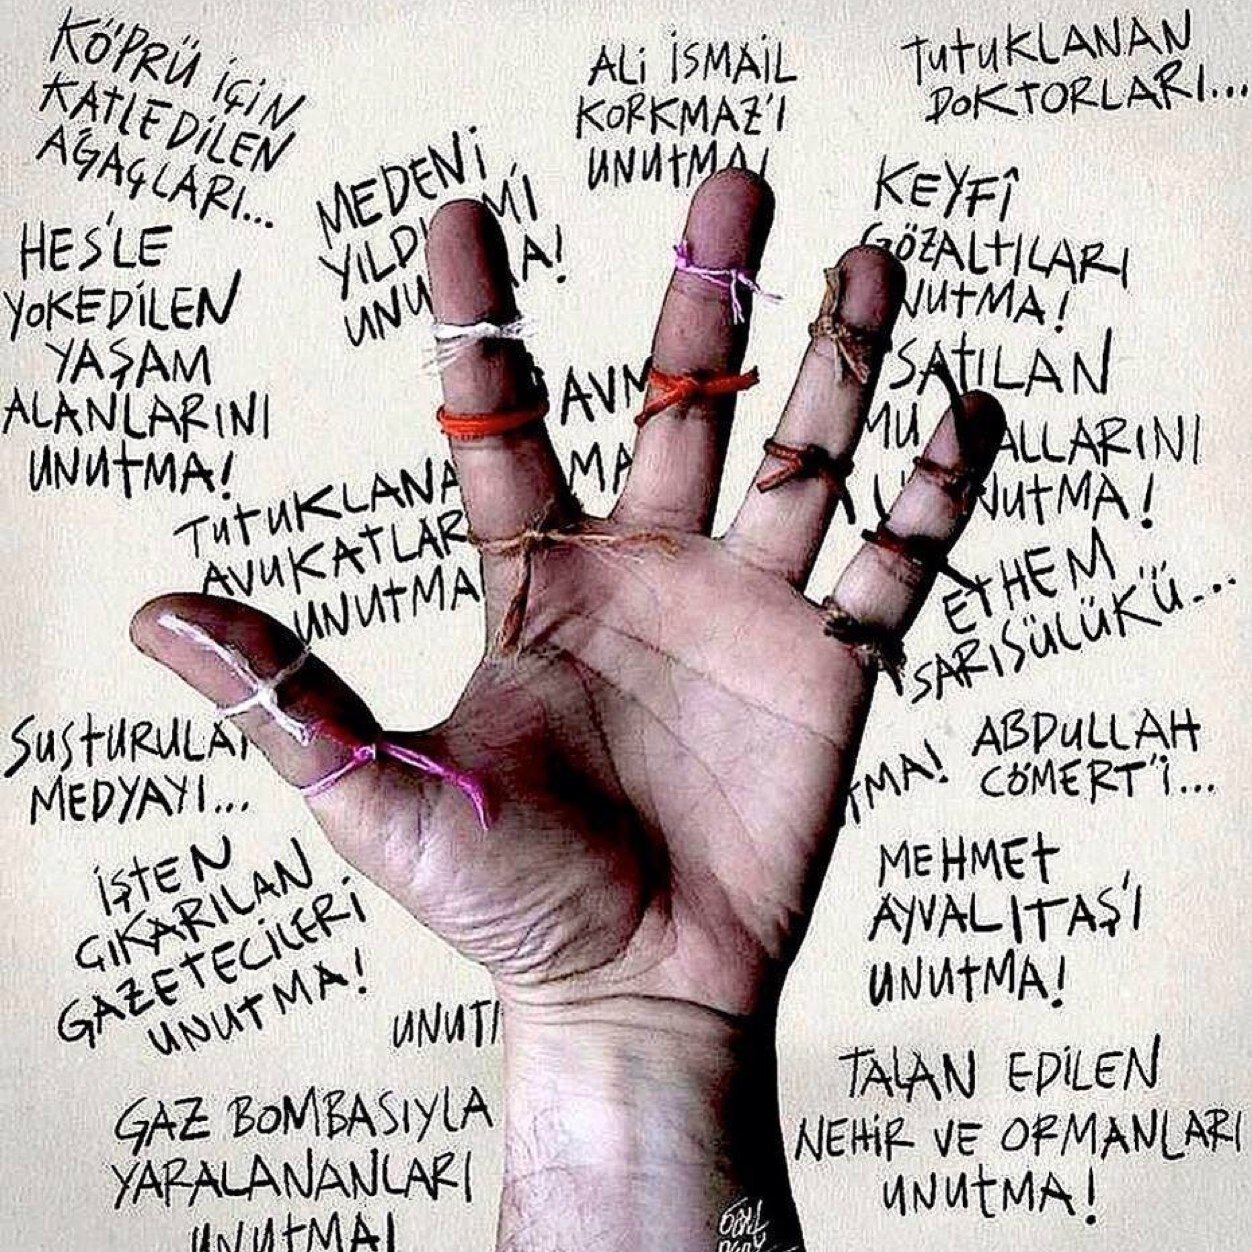 KÖPRÜ İÇİN
KATLEDİLEN
AĞAÇLARI...
ALİ İSMAİL
KORKMAZ'I
UNUTMA!
TUTUKLANAN
DOKTORLARI...
MEDENİ
UNU
A!
KEYFÎ
GÖZALTILARI
UNUTMA!
HES'LE
YOKEDİLEN
YAŞAM
ALANLARINI
UNUTMA!
SATILAN
MU ALLARINI
UNUTMA!
AVM
MA
TUTUKLANA
AVUKATLAR
UNUTMA
ETHEM
SARISÜLÜK'Ü...
SUSTURULA
MEDYAYI...
TMA!
ABDULLAH
CÖMERT'İ...
İŞTEN
ÇIKARILAN
GAZETECİLERİ
UNUTMA!
MEHMET
AYVALITAŞ'I
UNUTMA!
UNUT
GAZ BOMBASIYLA
YARALANANLARI
UNUTMA!
TALAN EDİLEN
NEHİR VE ORMANLARI
UNUTMA!